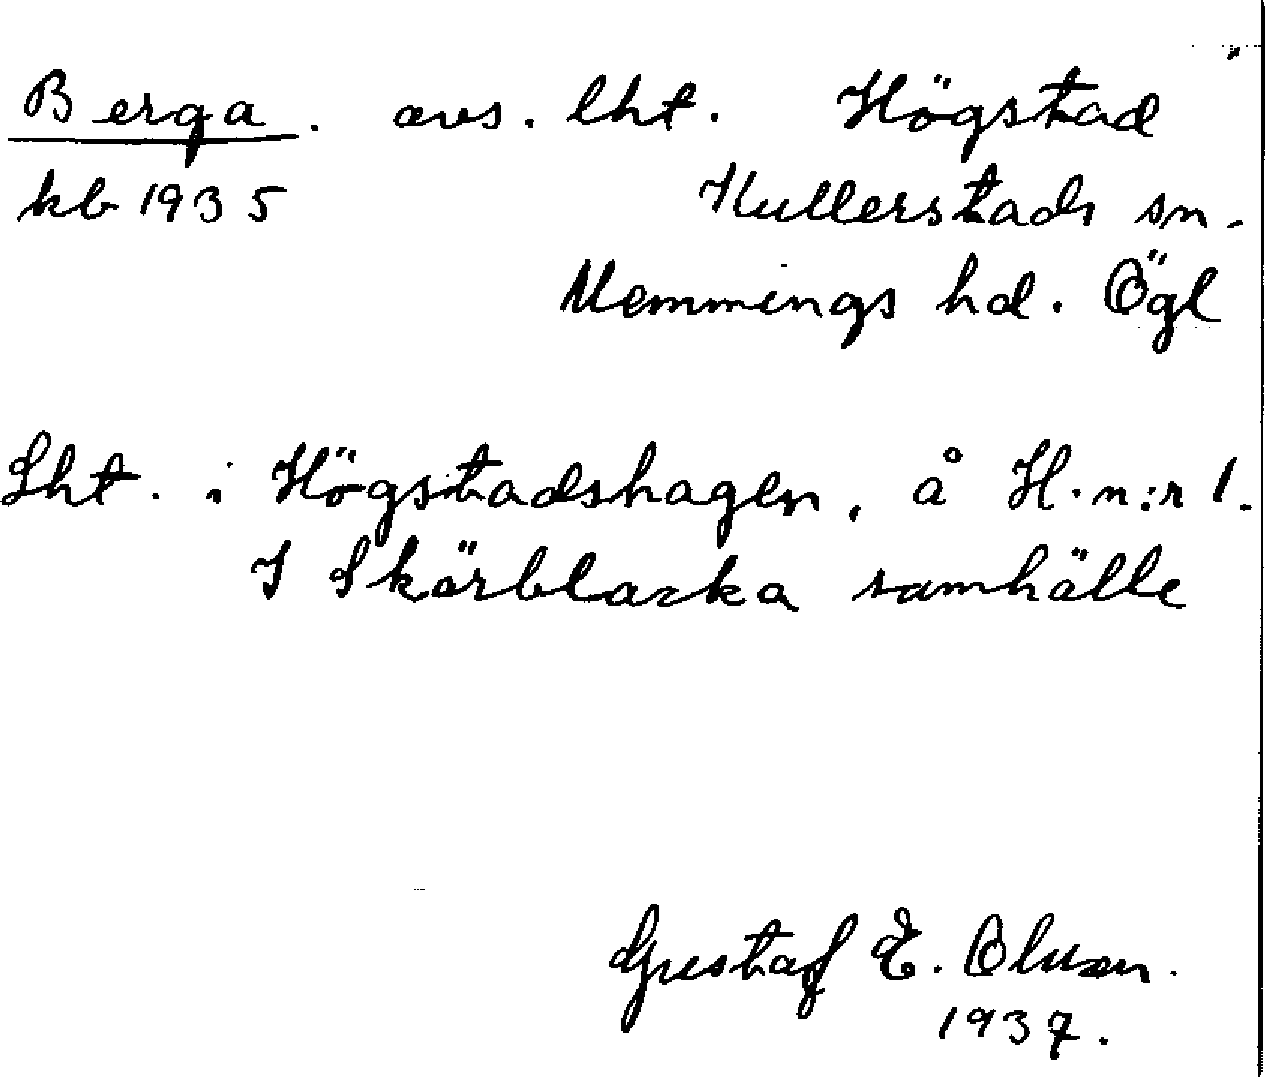 Berga. avs. lht. Högstad
kb 1935 Kullerstads sn.
Memmings hd. Ögl
Lht. i Högstadshagen, å H. n:r 1.
I Skärblacka samhälle
Gustaf E. Olsson.
1937.